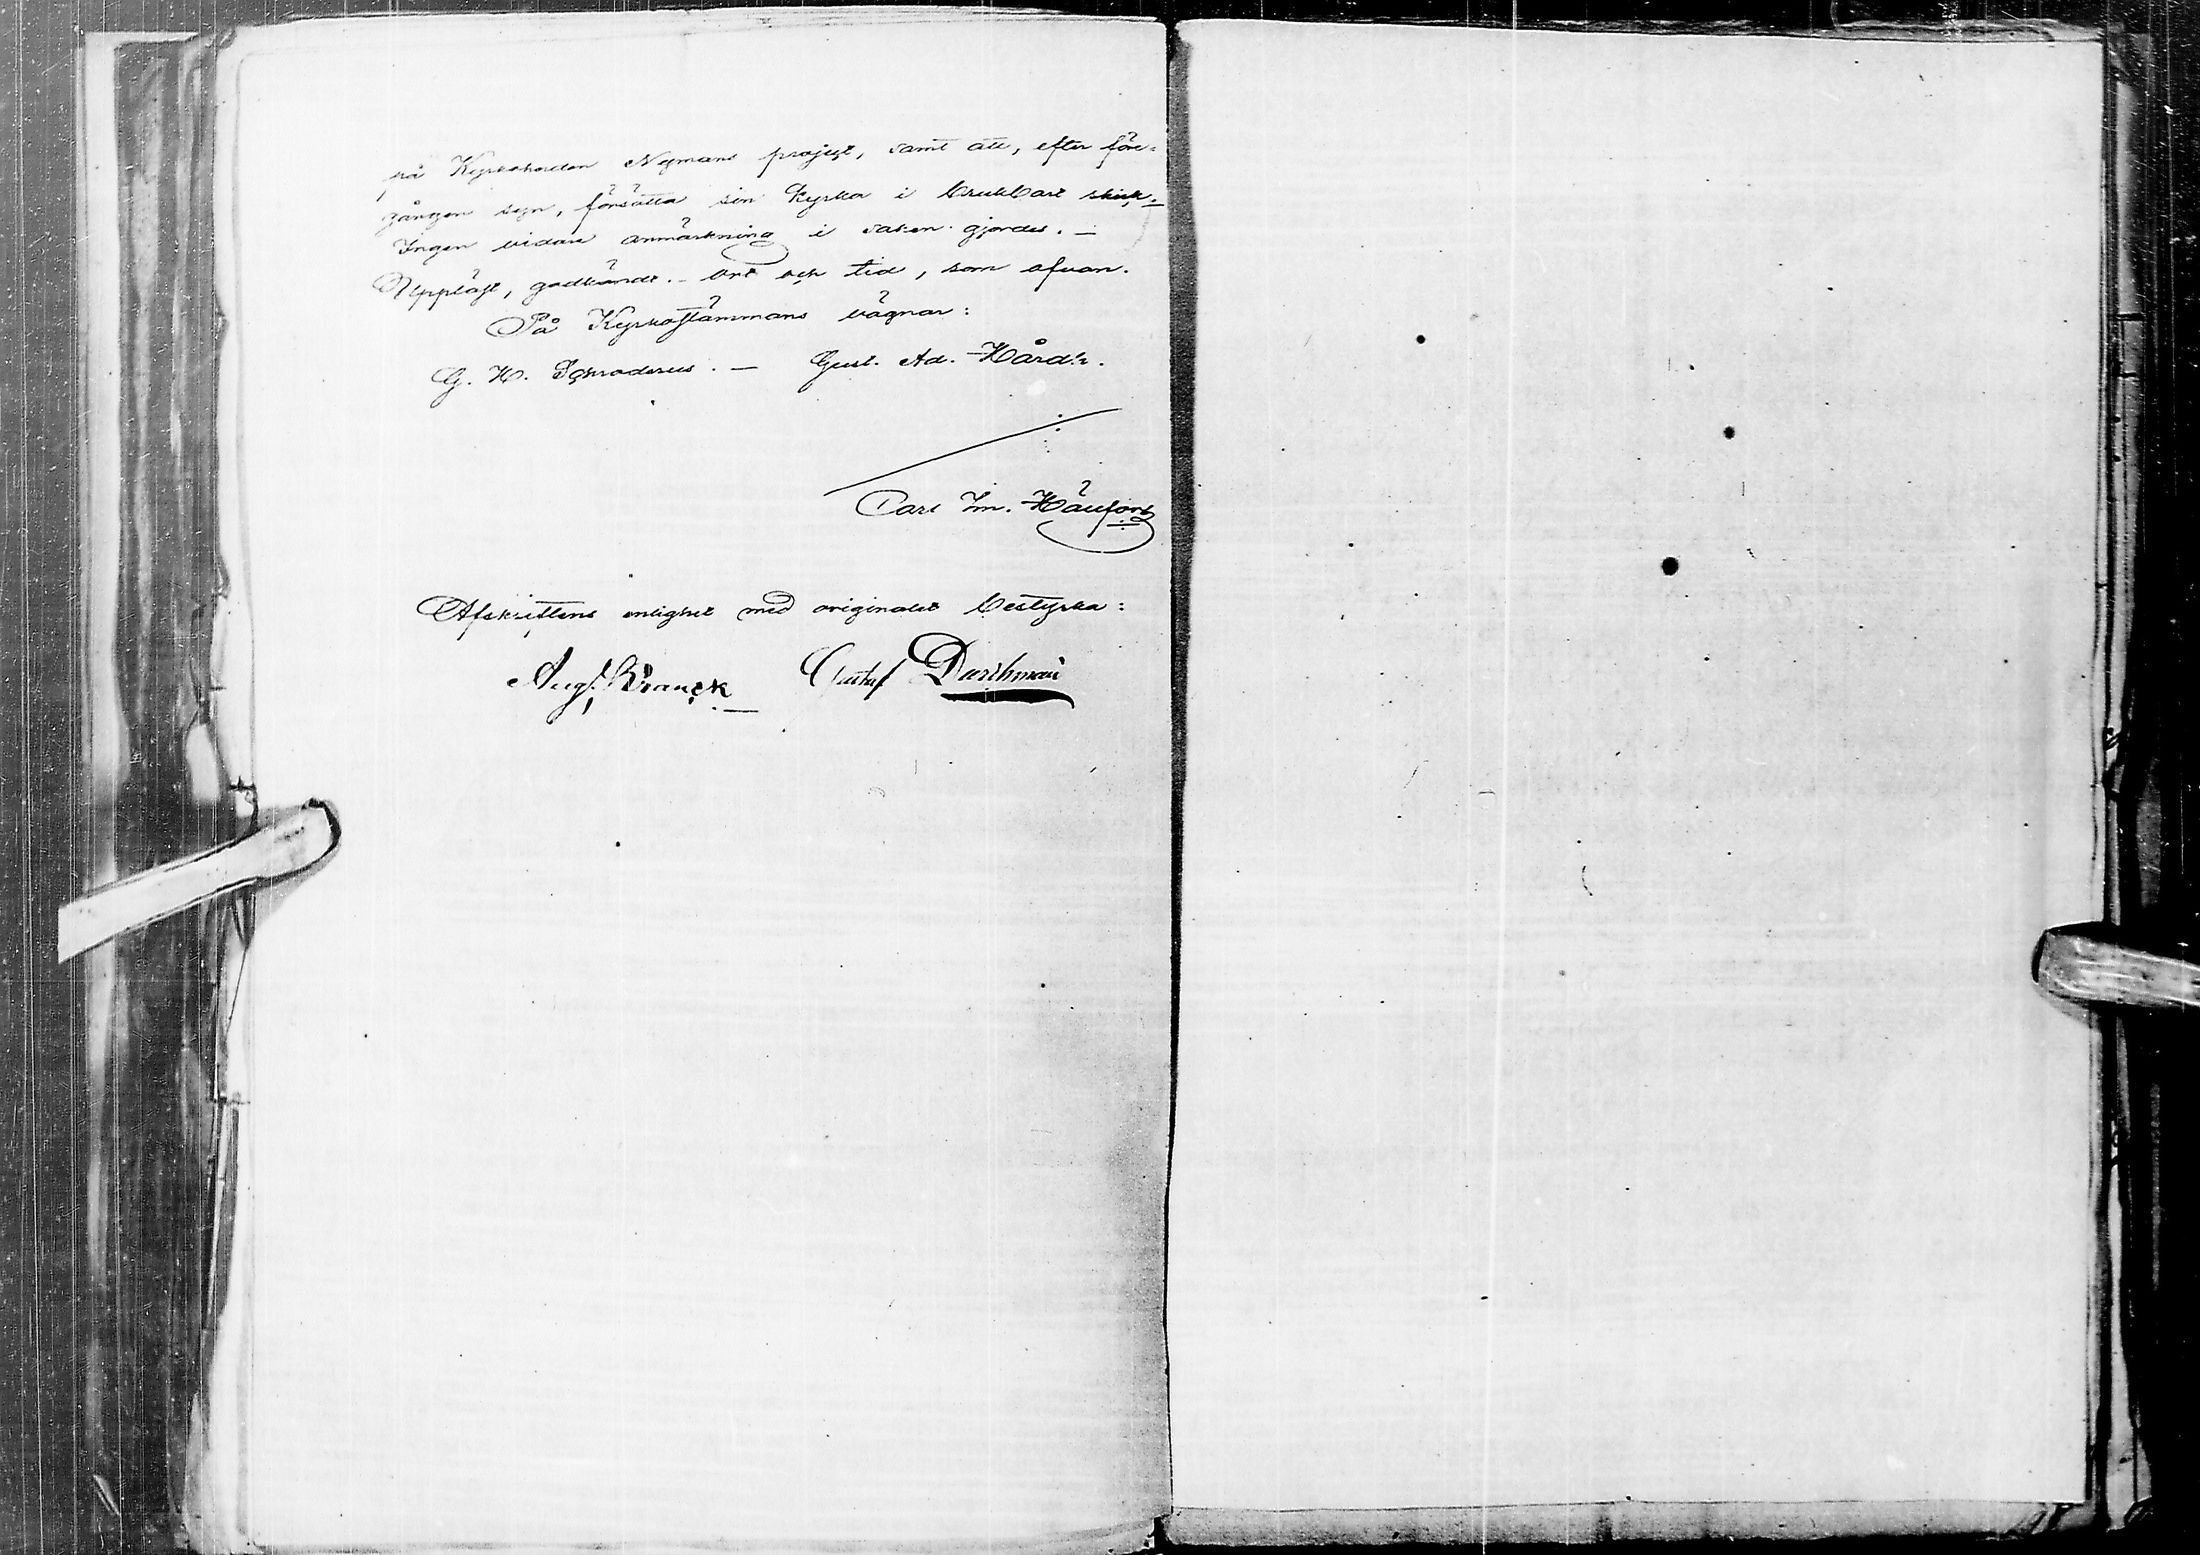 på Kyrkoherden Nymans projegt, samt att, efter före-
gången syn, försätta sin Kyrka i brukbart skick.
Ingen vidare anmärkning i saken gjordes. —
Uppläst, godkändt. — Ort och tid, som ofvan.
På Kyrkostämmans vägnar:
G. H. Schroderus. — Gust. Ad. Hårdh.
Carl Im.
Afskriftens enlighet med originalet bestyrka:
Aug. Kranck Gustaf